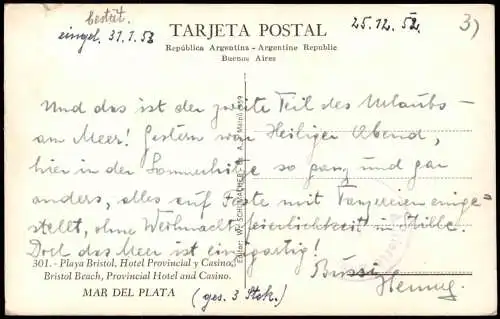 bestät.
eingel. 31.1.53
TARJETA POSTAL
25.12.52.
3)
República Argentina - Argentine Republic
Buenos Aires
Und das ist der zweite Teil des Urlaubs-
am Meer! Gestern war Heiliger Abend,
hier in der Sommerhitze so ganz und gar
anders, alles auf Feste mit Tanzereien einge-
stellt, ohne Weihnachtsfeierlichkeit in Stille.
Doch das Meer ist einzigartig!
301. - Playa Bristol, Hotel Provincial y Casino.
Bristol Beach, Provincial Hotel and Casino.
Bussi
MAR DEL PLATA
(ges. 3 Stck.)